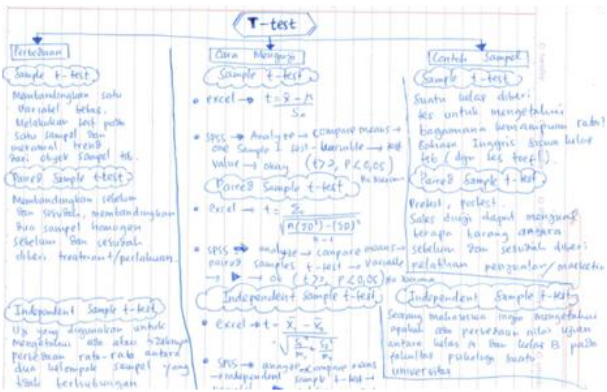 T-test
Perbedaan
Sample t-test
Membandingkan satu
variabel bebas.
Melakukan test pada
satu sampel dan
meramal trend
dari objek sampel tsb.
Paired Sample t-test
Membandingkan sebelum
dan sesudah, membandingkan
dua sampel homogen
sebelum dan sesudah
diberi treatment/perlakuan.
Independent Sample t-test
Uji yang digunakan untuk
mengetahui ada atau tidaknya
perbedaan rata-rata antara
dua kelompok sampel yang
tidak berhubungan
Cara Menguji
Sample t-test
• excel → t =
• SPSS → Analyze → compare means →
one sample t test → variable → test
value → okay (t>2, P<0,05)
Paired Sample t-test
• Excel → t =
• SPSS → analyze → compare means →
paired samples t-test → variable
→ ok (t>2, P<0,05)
Independent Sample t-test
• excel → t =
• SPSS → analyze → compare means
→ independent sample t-test →
Contoh Sampel
Sample t-test
Suatu kelas diberi
tes untuk mengetahui
bagaimana kemampuan rata2
Bahasa Inggris siswa kelas
tsb (dgn tes toefl).
Paired Sample t-test
Pretest, postest.
Sales diuji dapat menjual
berapa barang antara
sebelum dan sesudah diberi
pelatihan
Independent Sample t-test
Seorang mahasiswa ingin mengetahui
apakah ada perbedaan nilai ujian
antara kelas A dan kelas B pada
fakultas psikologi suatu
universitas